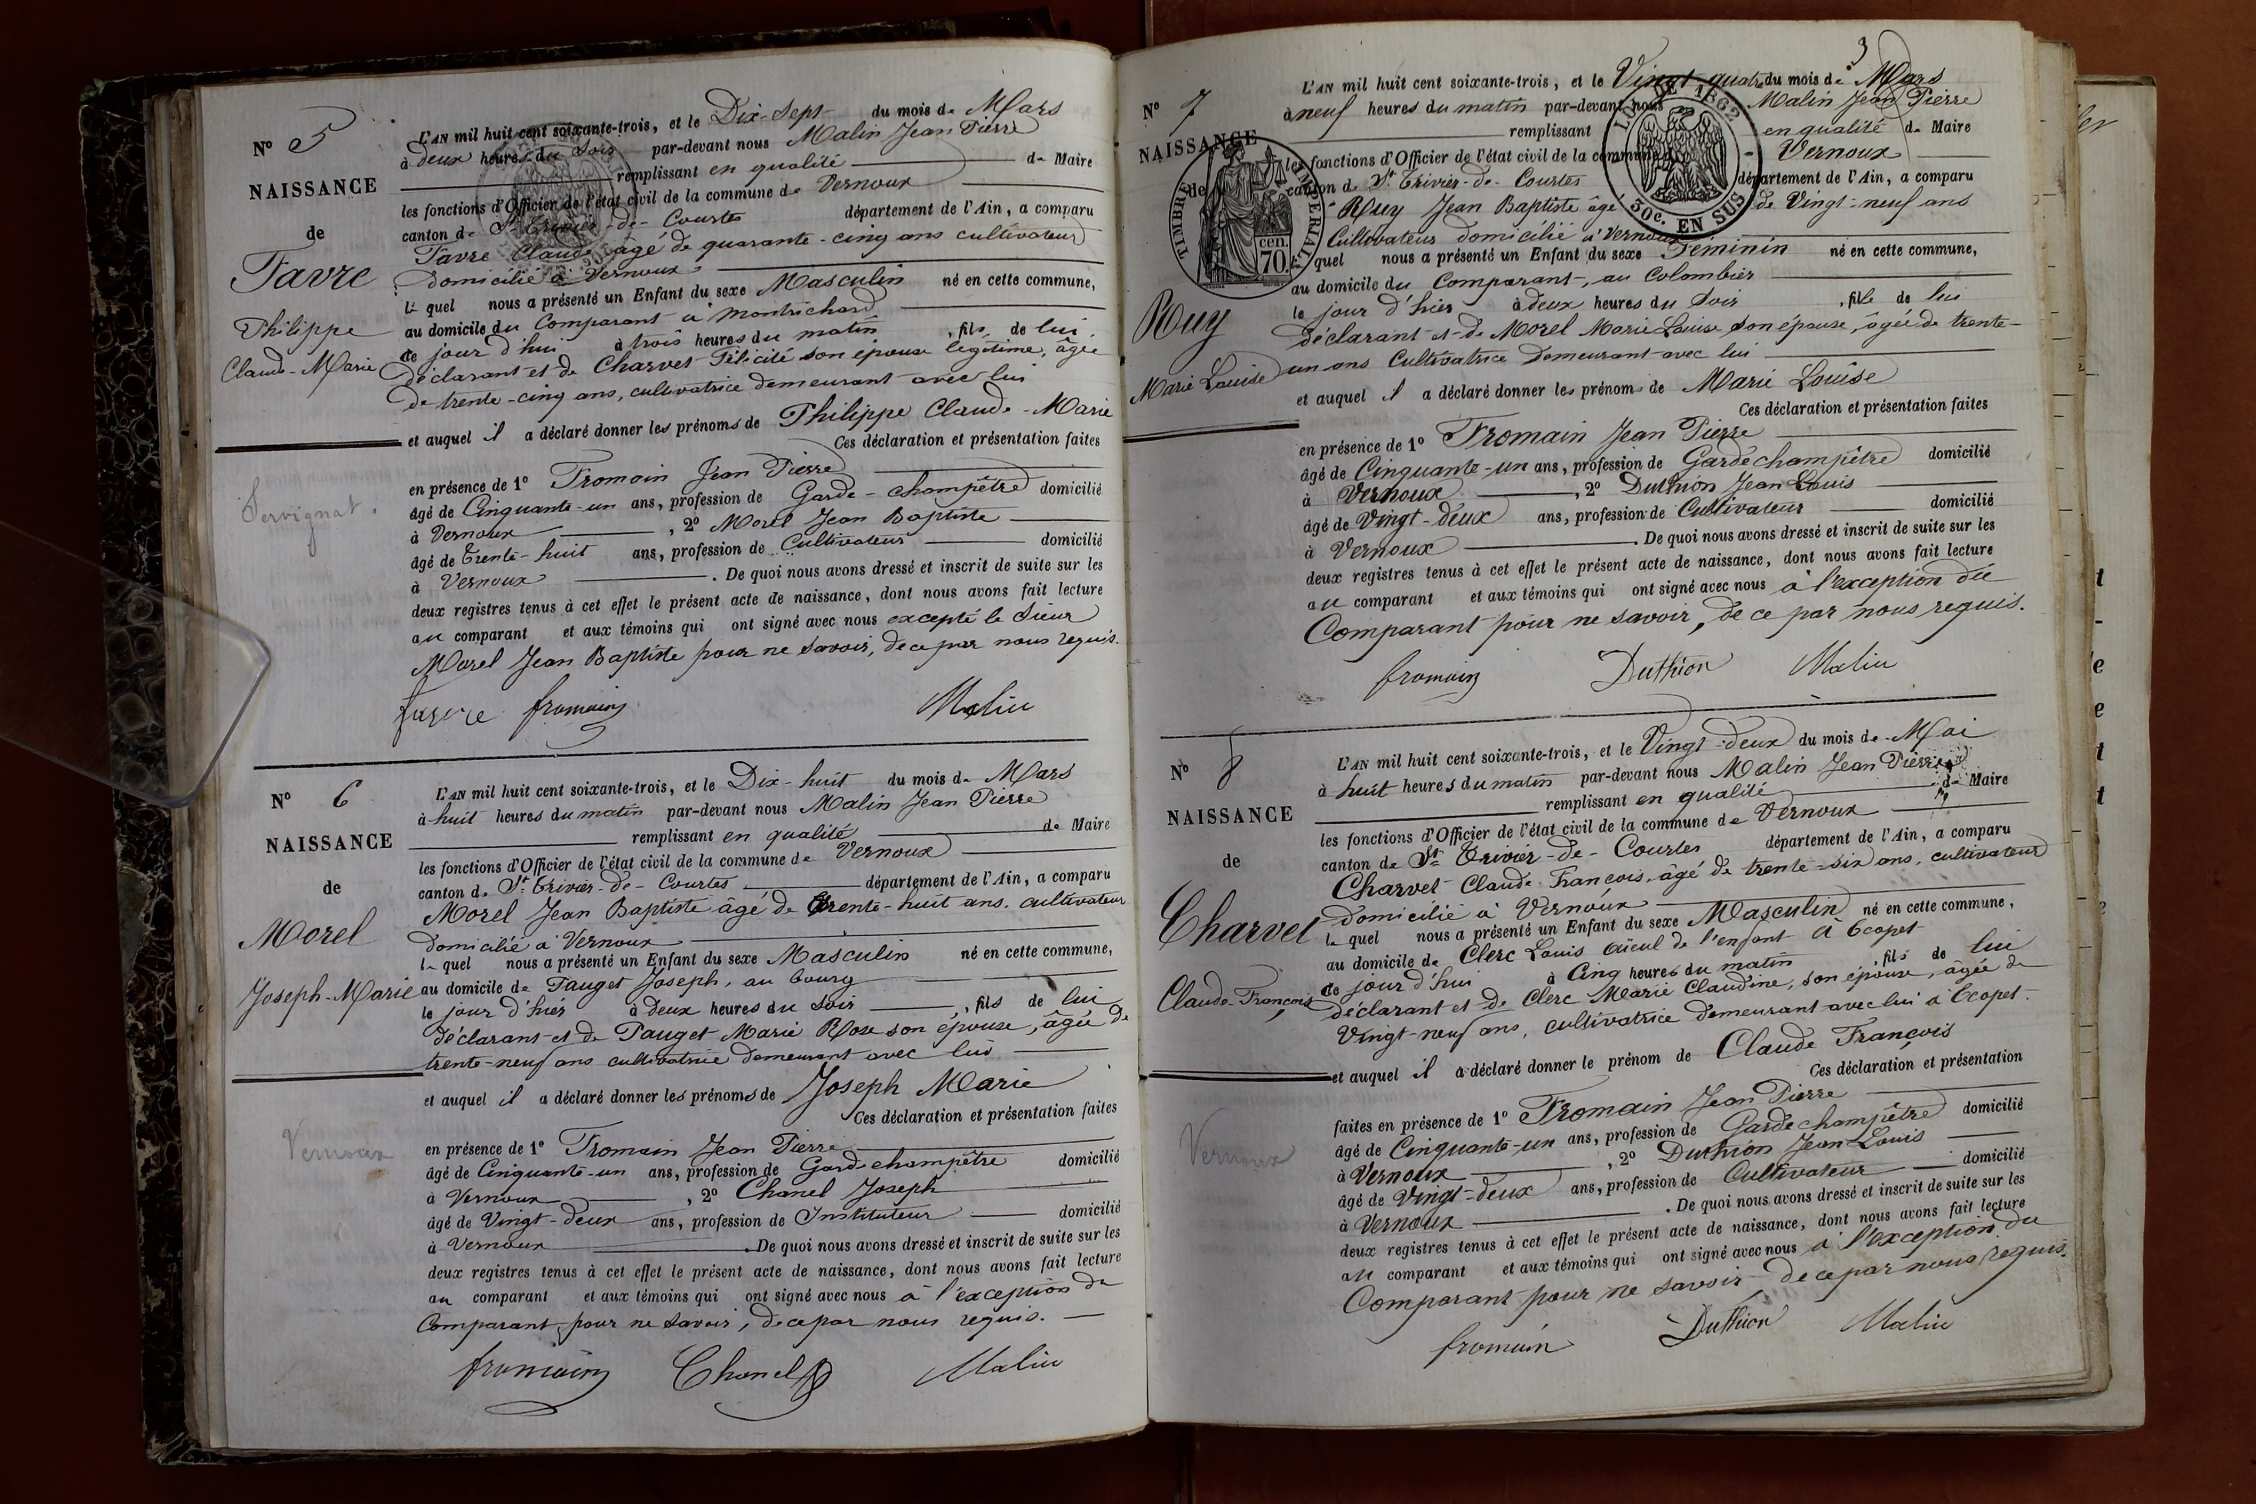 N° 5
NAISSANCE
de
Favre
Philippe
Claude-Marie
Servignat.
L'AN mil huit cent soixante-trois, et le Dix-Sept du mois de Mars
à deux heures du soir par-devant nous Malin Jean Pierre
remplissant en qualité de Maire
les fonctions d'Officier de l'état civil de la commune de Vernoux
canton de St Trivier-de-Courtes département de l'Ain, a comparu
Favre Claude âgé de quarante-cinq ans cultivateur
domicilié à Vernoux
le quel nous a présenté un Enfant du sexe Masculin né en cette commune,
au domicile du Comparant à Montrichard
ce jour d'hui à trois heures du matin, fils de lui
déclarant et de Charvet Félicité son épouse légitime, âgée
de trente-cinq ans, cultivatrice demeurant avec lui
et auquel il a déclaré donner les prénoms de Philippe Claude-Marie
Ces déclaration et présentation faites
en présence de 1° Fromain Jean Pierre
âgé de Cinquante-un ans, profession de Garde-champêtre domicilié
à Vernoux, 2° Morel Jean Baptiste
âgé de Trente-huit ans, profession de Cultivateur domicilié
à Vernoux. De quoi nous avons dressé et inscrit de suite sur les
deux registres tenus à cet effet le présent acte de naissance, dont nous avons fait lecture
au comparant et aux témoins qui ont signé avec nous excepté le Sieur
Morel Jean Baptiste pour ne savoir, de ce par nous requis.
favre fromain Malin
N° 6
NAISSANCE
de
Morel
Joseph-Marie
Vernoux
L'AN mil huit cent soixante-trois, et le Dix-huit du mois de Mars
à huit heures du matin par-devant nous Malin Jean Pierre
remplissant en qualité de Maire
les fonctions d'Officier de l'état civil de la commune de Vernoux
canton de St Trivier-de-Courtes département de l'Ain, a comparu
Morel Jean Baptiste âgé de trente-huit ans, cultivateur
domicilié à Vernoux
le quel nous a présenté un Enfant du sexe Masculin né en cette commune,
au domicile de Pauget Joseph, au bourg
le jour d'hier à deux heures du soir, fils de lui
déclarant et de Pauget Marie Rose son épouse, âgée de
trente-neuf ans cultivatrice demeurant avec lui
et auquel il a déclaré donner les prénoms de Joseph Marie
Ces déclaration et présentation faites
en présence de 1° Fromain Jean Pierre
âgé de Cinquante-un ans, profession de Garde champêtre domicilié
à Vernoux, 2° Chanel Joseph
âgé de Vingt-deux ans, profession de Instituteur domicilié
à Vernoux. De quoi nous avons dressé et inscrit de suite sur les
deux registres tenus à cet effet le présent acte de naissance, dont nous avons fait lecture
au comparant et aux témoins qui ont signé avec nous à l'exception du
Comparant pour ne savoir, de ce par nous requis.
fromain Chanel Malin
3
N° 7
NAISSANCE
de
Ruy
Marie Louise
TIMBRE IMPERIAL
70 cen.
LOI DE 1862
50c. EN SUS
L'AN mil huit cent soixante-trois, et le Vingt quatre du mois de Mars
à neuf heures du matin par-devant nous Malin Jean Pierre
remplissant en qualité de Maire
les fonctions d'Officier de l'état civil de la commune de Vernoux
canton de St Trivier-de-Courtes département de l'Ain, a comparu
Ruy Jean Baptiste âgé de Vingt-neuf ans
Cultivateur domicilié à Vernoux
le quel nous a présenté un Enfant du sexe Féminin né en cette commune,
au domicile du Comparant, au Colombier
le jour d'hier à deux heures du Soir, fille de lui
déclarant et de Morel Marie Louise son épouse, âgée de trente-
un ans Cultivatrice demeurant avec lui
et auquel il a déclaré donner les prénoms de Marie Louise
Ces déclaration et présentation faites
en présence de 1° Fromain Jean Pierre
âgé de Cinquante-un ans, profession de Garde champêtre domicilié
à Vernoux, 2° Duthion Jean Louis
âgé de Vingt-deux ans, profession de Cultivateur domicilié
à Vernoux. De quoi nous avons dressé et inscrit de suite sur les
deux registres tenus à cet effet le présent acte de naissance, dont nous avons fait lecture
au comparant et aux témoins qui ont signé avec nous à l'exception du
Comparant pour ne savoir, de ce par nous requis.
fromain Duthion Malin
N° 8
NAISSANCE
de
Charvet
Claude-François
Vernoux
L'AN mil huit cent soixante-trois, et le Vingt-deux du mois de Mai
à huit heures du matin par-devant nous Malin Jean Pierre
remplissant en qualité de Maire
les fonctions d'Officier de l'état civil de la commune de Vernoux
canton de St Trivier-de-Courtes département de l'Ain, a comparu
Charvet Claude François, âgé de trente-six ans, cultivateur
domicilié à Vernoux
le quel nous a présenté un Enfant du sexe Masculin né en cette commune,
au domicile de Clerc Louis aïeul de l'enfant à Ecopet
ce jour d'hui à Cinq heures du matin, fils de lui
déclarant et de Clerc Marie Claudine, son épouse, âgée de
Vingt-neuf ans, cultivatrice demeurant avec lui à Ecopet.
et auquel il a déclaré donner le prénom de Claude François
Ces déclaration et présentation
faites en présence de 1° Fromain Jean Pierre
âgé de Cinquante-un ans, profession de Garde champêtre domicilié
à Vernoux, 2° Duthion Jean Louis
âgé de Vingt-deux ans, profession de Cultivateur domicilié
à Vernoux. De quoi nous avons dressé et inscrit de suite sur les
deux registres tenus à cet effet le présent acte de naissance, dont nous avons fait lecture
au comparant et aux témoins qui ont signé avec nous à l'exception du
Comparant pour ne savoir de ce par nous requis.
fromain Duthion Malin